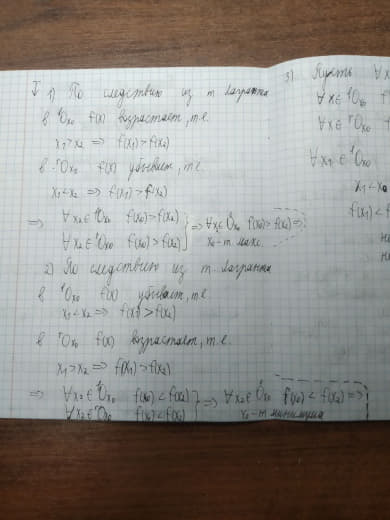 ↓ 1) По следствию из т. Лагранжа
в ¹Ox₀ f(x) возрастает, т.е.
x₁>x₂ ⇒ f(x₁)>f(x₂)
в ²Ox₀ f(x) убывает, т.е.
x₁<x₂ ⇒ f(x₁)>f(x₂)
⇒ ∀x₂∈¹Ox₀ f(x₀)>f(x₂)
∀x₂∈²Ox₀ f(x₀)>f(x₂) } ⇒ ∀x₂∈Ox₀ f(x₀)>f(x₂) ⇒
x₀-т. макс.
2) По следствию из т. Лагранжа
в ¹Ox₀ f(x) убывает, т.е
x₁<x₂ ⇒ f(x₁)>f(x₂)
в ²Ox₀ f(x) возрастает, т.е.
x₁>x₂ ⇒ f(x₁)>f(x₂)
⇒ ∀x₂∈¹Ox₀ f(x₀)<f(x₂)
∀x₂∈²Ox₀ f(x₀)<f(x₂) } ⇒ ∀x₂∈Ox₀ f(x₀)<f(x₂) ⇒
x₀-т минимума
3) Пусть ∀x
∀x∈¹Ox₀ f
∀x∈²Ox₀ f
∀x₁∈¹Ox₀
x₁<x₀
f(x₁)<f